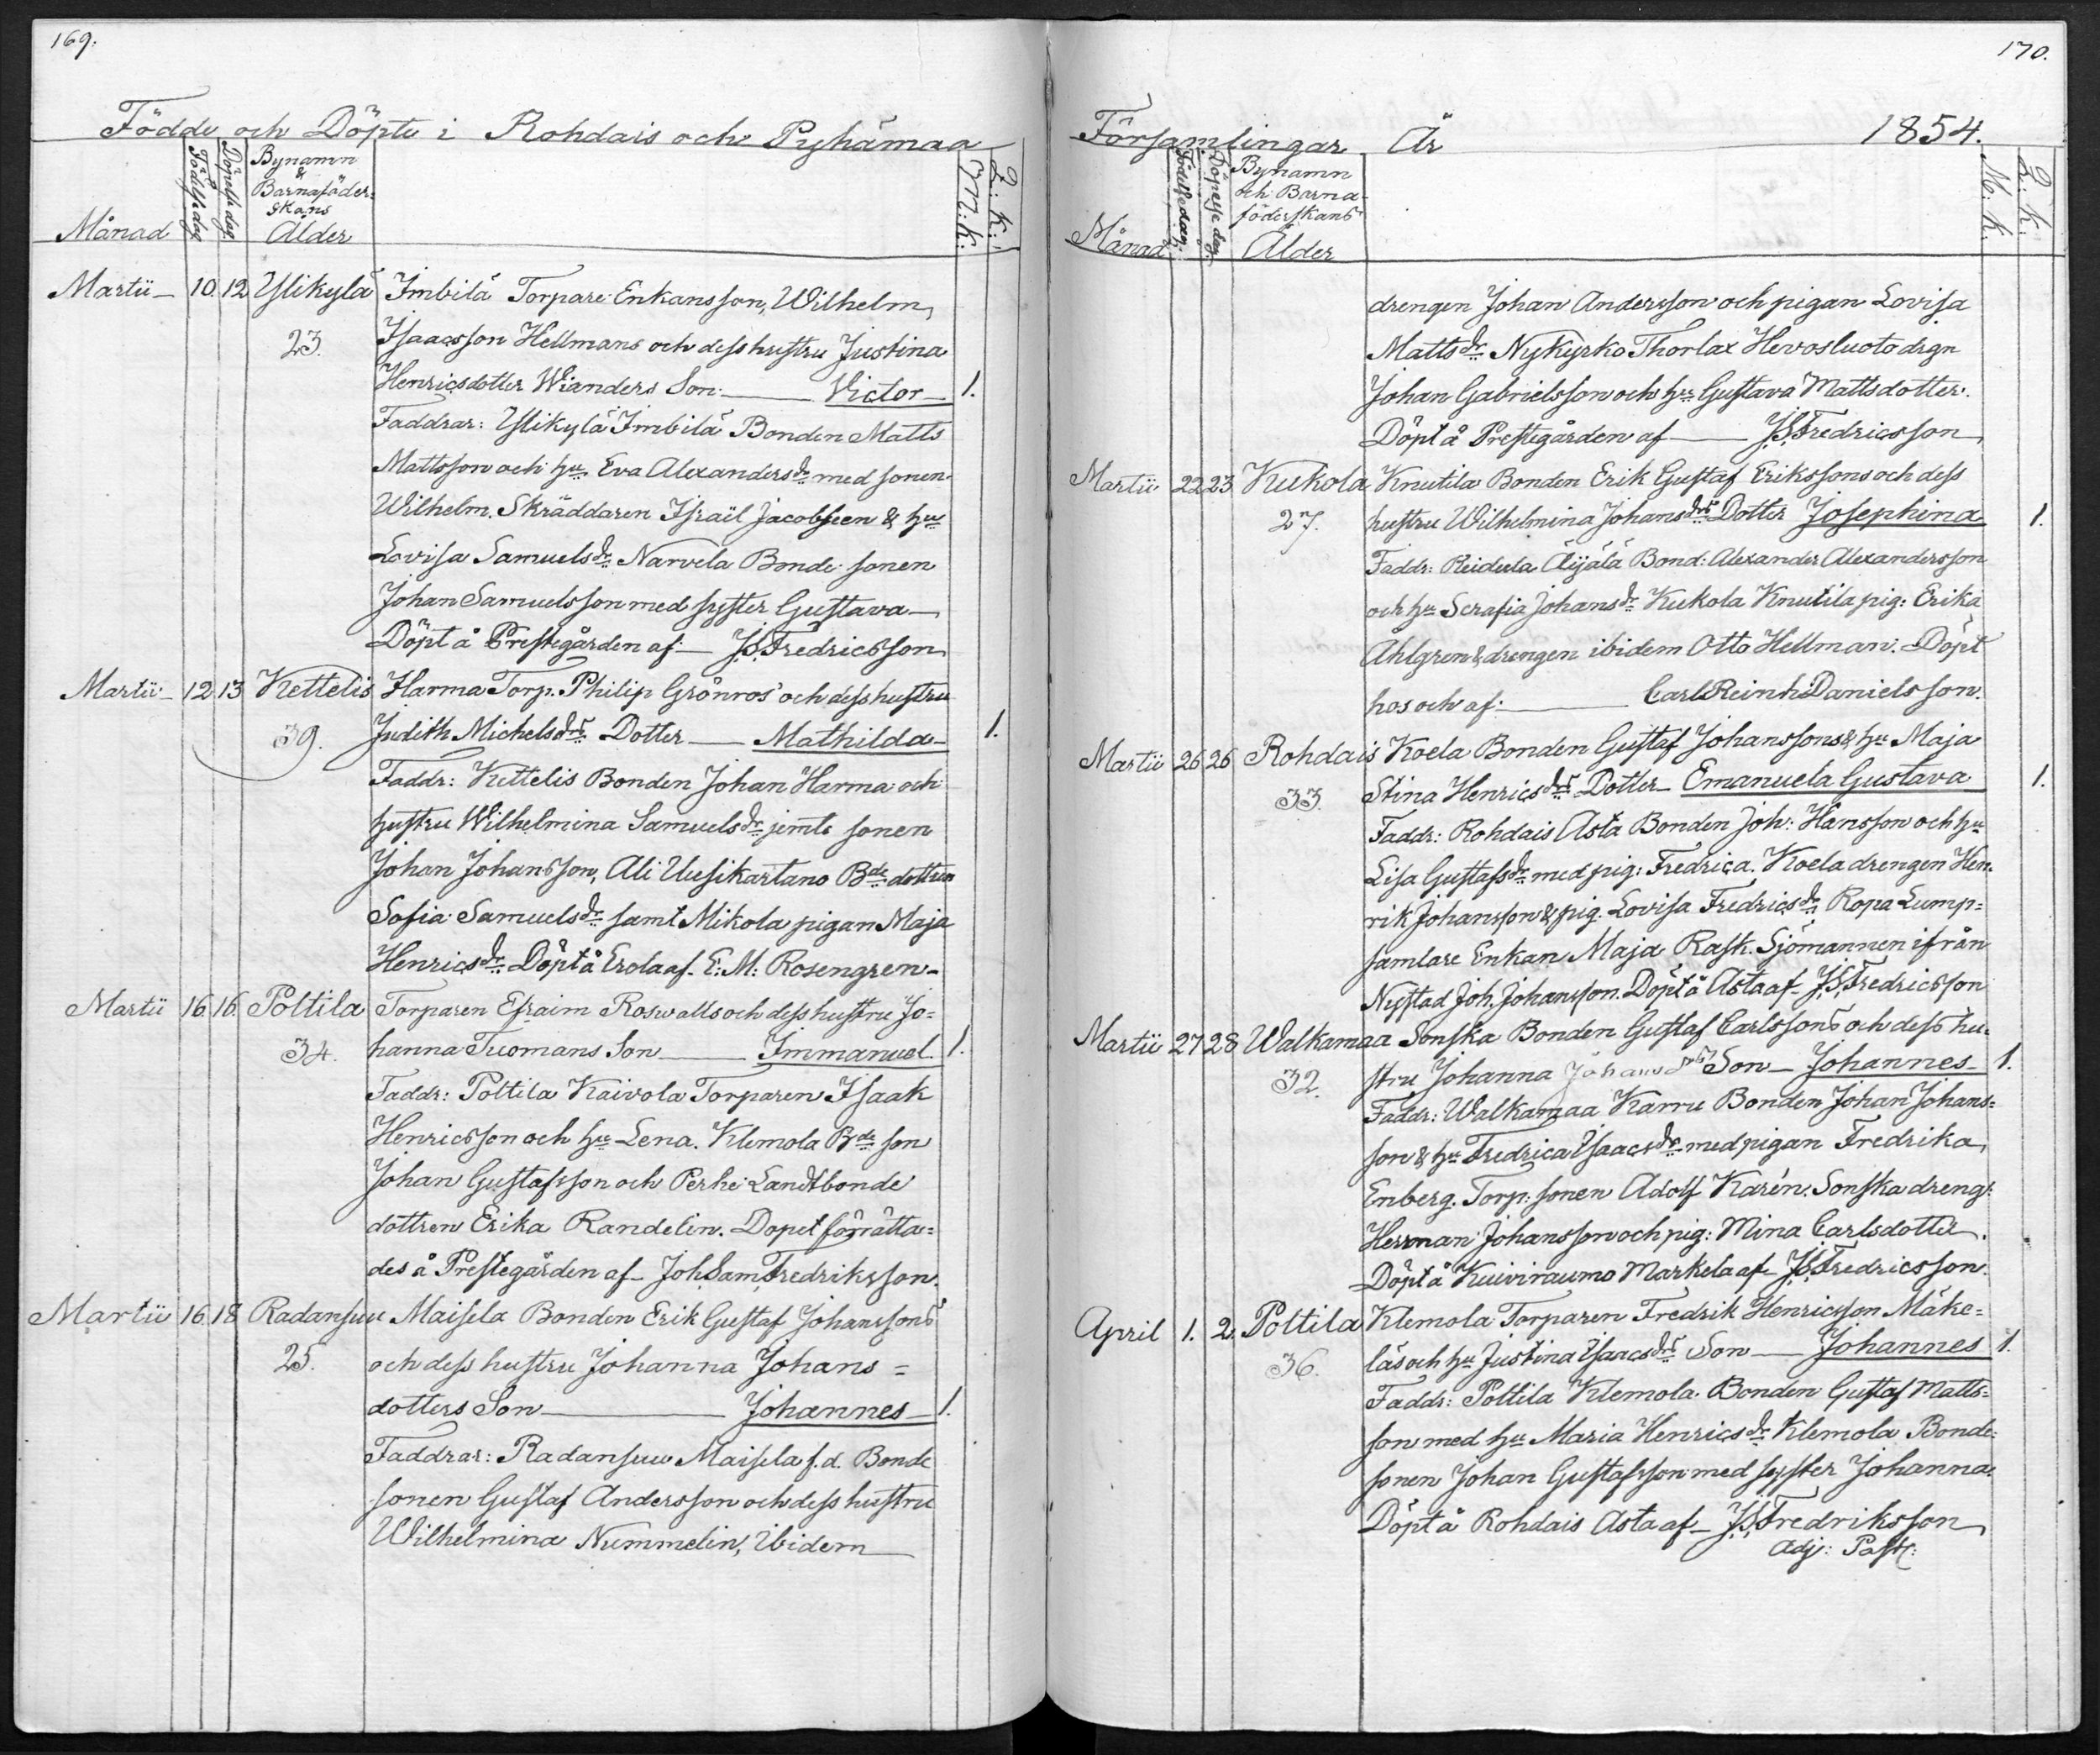 169.
Födde och Döpte i Rohdais och Pyhämaa
Månad
Födelse dag
Döpelse dag.
Bynamn
&
Barnaföder-
skans
Ålder
M: K:
Q: K:
Martii - 10. 12 Ylikylä Imbilä Torpare Enkans son, Wilhelm
23. Isaacsson Hellmans och dess hustru Justina
Henricsdotter Wianders Son - Victor - 1.
Faddrar: Ylikylä Imbilä Bonden Matts
Mattsson och hu Eva Alexandersdr med sonen
Wilhelm. Skräddaren Israël Jacobsson & hu
Lovisa Samuelsdr Narvela Bonde sonen
Johan Samuelsson med syster Gustava -
Döpt å Prestegården af - J.S. Fredricsson
Martii - 12 13 Kettelis Harma Torp. Philip Grönros och dess hustru
39. Judith Michelsdrs Dotter - Mathilda - 1.
Faddr: Kettelis Bonden Johan Harma och
hustru Wilhelmina Samuelsdr jemte sonen
Johan Johansson, Ali Uusikartano Bde dottren
Sofia Samuelsdr samt Mikola pigan Maja
Henricsdr Döpt å Erola af E: M: Rosengren -
Martii 16 16. Poltila Torparen Efraim Roswalls och dess hustru Jo=
34. hanna Tuomans Son - Immanuel. 1.
Faddr: Poltila Kaivola Torparen Isaak
Henricsson och hu Lena. Klemola Bde son
Johan Gustafsson och Perhe Landtbonde
dottren Erika Randelin. Dopet förrätta=
des å Prestegården af - Joh Sam Fredriksson.
Martii 16 18 Radansuu Maisela Bonden Erik Gustaf Johanssons
25. och dess hustru Johanna Johans =
dotters Son - Johannes - 1.
Faddrar: Radansuu Maisela f.d. Bonde
sonen Gustaf Andersson och dess hustru
Wilhelmina Nummelin, Ibidem
170.
Församlingar År 1854.
Månad
Födelse dag.
Döpelse dag.
Bynamn
och Barna-
föderskans
Ålder
M: K:
Q: K:
drengen Johan Andersson och pigan Lovisa
Mattsdr Nykyrko Thorlax Hevosluoto drgn
Johan Gabrielsson och hu Gustava Mattsdotter.
Döpt å Prestegården af - J.S. Fredricsson
Martii 22 23 Kukola Knutila Bonden Erik Gustaf Erikssons och dess
27. hustru Wilhelmina Johansdrs Dotter Josephina 1.
Faddr: Reidula Äijälä Bond: Alexander Alexandersson
och hu Serafia Johansdr Kukola Knutila pig: Erika
Åhlgren & drengen ibidem Otto Hellman. Döpt
hos och af: - Carl Reinh: Danielsson.
Martii 26 26 Rohdais Koela Bonden Gustaf Johanssons & hu Maja
33. Stina Henricsdrs Dotter - Emanuela Gustava 1.
Faddr: Rohdais Asta Bonden Joh: Hansson och hu
Lisa Gustafsdr med pig: Fredrica. Koela drengen Hen-
rik Johansson & pig. Lovisa Fredricsdr Ropa Lump=
samlare Enkan Maja Rask. Sjömannen ifrån
Nystad Joh. Johansson. Döpt å Asta af - J.S. Fredricsson
Martii 27 28 Walkamaa Sonska Bonden Gustaf Carlssons och dess hu-
32. stru Johanna Johansdrs Son - Johannes - 1.
Faddr: Walkamaa Karru Bonden Johan Johans=
son & hu Fredrica Isaacsdr med pigan Fredrika
Enberg. Torp: sonen Adolf Karén. Sonska dreng:
Herrman Johansson och pig: Mina Carlsdotter.
Döpt å Kuiviraumo Markela af - J.S. Fredricsson.
April 1. 2. Poltila Klemola Torparen Fredrik Henricsson Mäke=
36. läs och hu Justina Isaacsdrs Son - Johannes 1.
Faddr: Poltila Klemola Bonden Gustaf Matts=
son med hu Maria Henricsdr Klemola Bonde-
sonen Johan Gustafsson med syster Johanna.
Döpt å Rohdais Asta af - J.S. Fredriksson
Adj: Past: